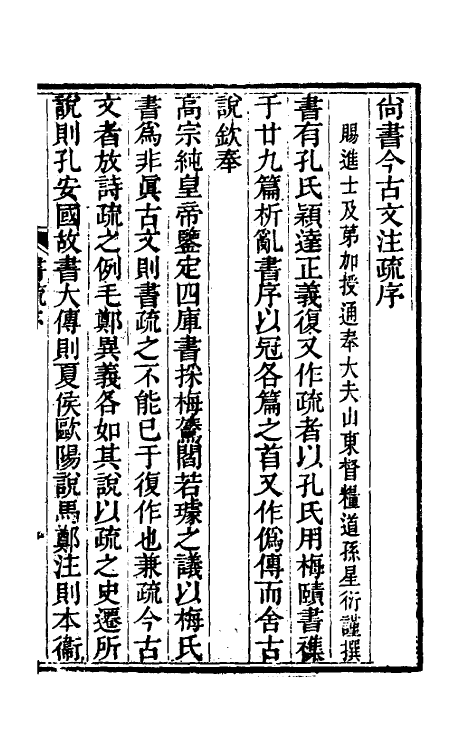 尚書今古文注疏序
賜進士及第加授通奉大夫山東督糧道孫星衍謹撰
書有孔氏穎達正義復又作疏者以孔氏用梅賾書襍
于廿九篇析亂書序以冠各篇之首又作僞傳而舍古
說欽奉
高宗純皇帝鑒定四庫書採梅鷟閻若璩之議以梅氏
書爲非眞古文則書疏之不能已于復作也兼疏今古
文者放詩疏之例毛鄭異義各如其說以疏之史遷所
說則孔安國故書大傳則夏侯歐陽說馬鄭注則本衞